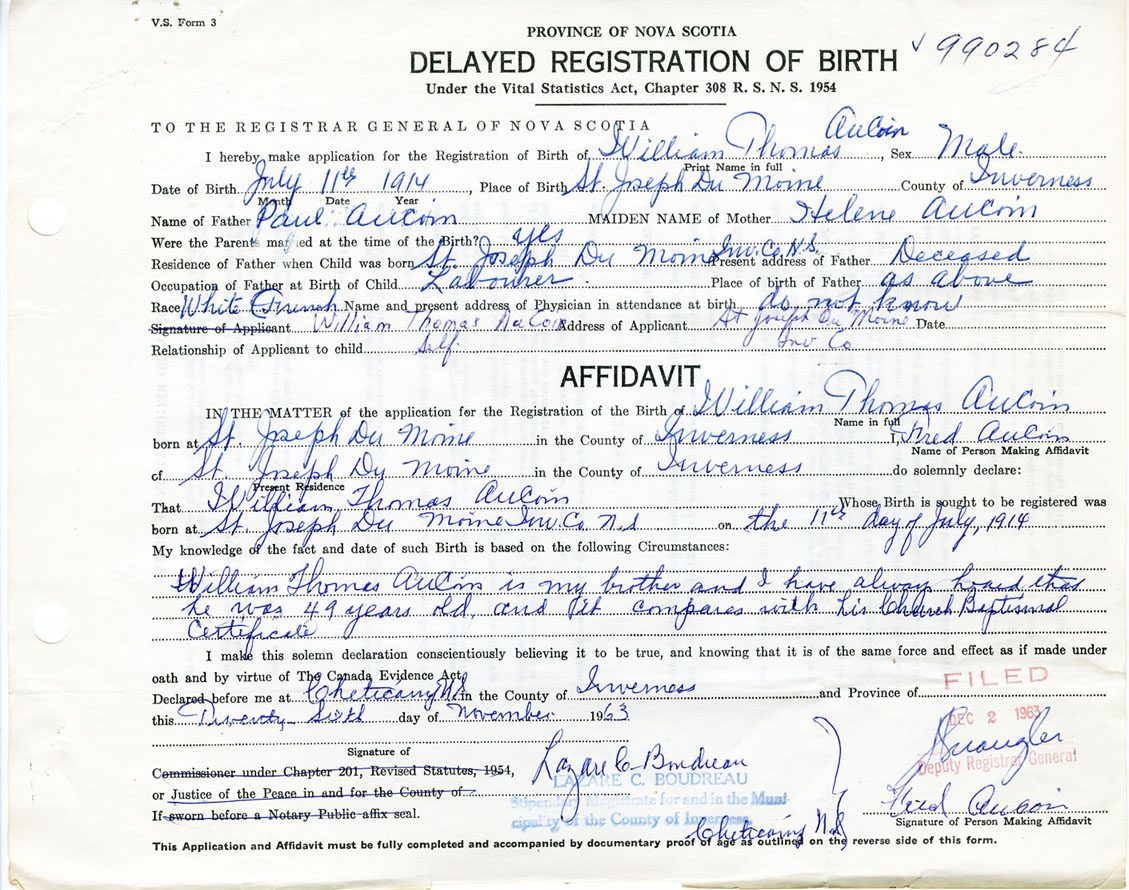 V.S. Form 3
PROVINCE OF NOVA SCOTIA
DELAYED REGISTRATION OF BIRTH √ 990284
Under the Vital Statistics Act, Chapter 308 R. S. N. S. 1954
TO THE REGISTRAR GENERAL OF NOVA SCOTIA
I hereby make application for the Registration of Birth of William Thomas AuCoin, Sex Male.
Print Name in full
Date of Birth July 11th 1914, Place of Birth St. Joseph Du Moine County of Inverness
Month Date Year
Name of Father Paul AuCoin MAIDEN NAME of Mother Helene AuCoin
Were the Parents married at the time of the Birth? yes
Residence of Father when Child was born St. Joseph Du Moine Inv. Co N.S. Present address of Father Deceased
Occupation of Father at Birth of Child Labourer Place of birth of Father as above
Race White (French Name and present address of Physician in attendance at birth do not know
Signature of Applicant William Thomas AuCoin Address of Applicant St Joseph Du Moine Date
Inv Co
Relationship of Applicant to child Self
AFFIDAVIT
IN THE MATTER of the application for the Registration of the Birth of William Thomas AuCoin
Name in full
born at St. Joseph Du Moine in the County of Inverness I, Fred AuCoin
Name of Person Making Affidavit
of St. Joseph Du Moine in the County of Inverness do solemnly declare:
Present Residence
That William Thomas AuCoin Whose Birth is sought to be registered was
born at St. Joseph Du Moine Inv. Co N.S on the 11th day of July, 1914
My knowledge of the fact and date of such Birth is based on the following Circumstances:
William Thomas AuCoin is my brother and I have always heard that
he was 49 years old, and it compares with his Church Baptismal
Certificate
I make this solemn declaration conscientiously believing it to be true, and knowing that it is of the same force and effect as if made under
oath and by virtue of The Canada Evidence Act.
FILED
Declared before me at Cheticamp N.S. in the County of Inverness and Province of
this Twenty Sixth day of November 1963
DEC 2 1963
Deputy Registrar General
Signature of
Commissioner under Chapter 201, Revised Statutes, 1954,
Lazare C. Boudreau
LAZARE C. BOUDREAU
or Justice of the Peace in and for the County of
Stipendary Magistrate for and in the Muni-
cipality of the County of Inverness
Fred AuCoin
Signature of Person Making Affidavit
If sworn before a Notary Public affix seal.
Cheticamp N.S
This Application and Affidavit must be fully completed and accompanied by documentary proof of age as outlined on the reverse side of this form.